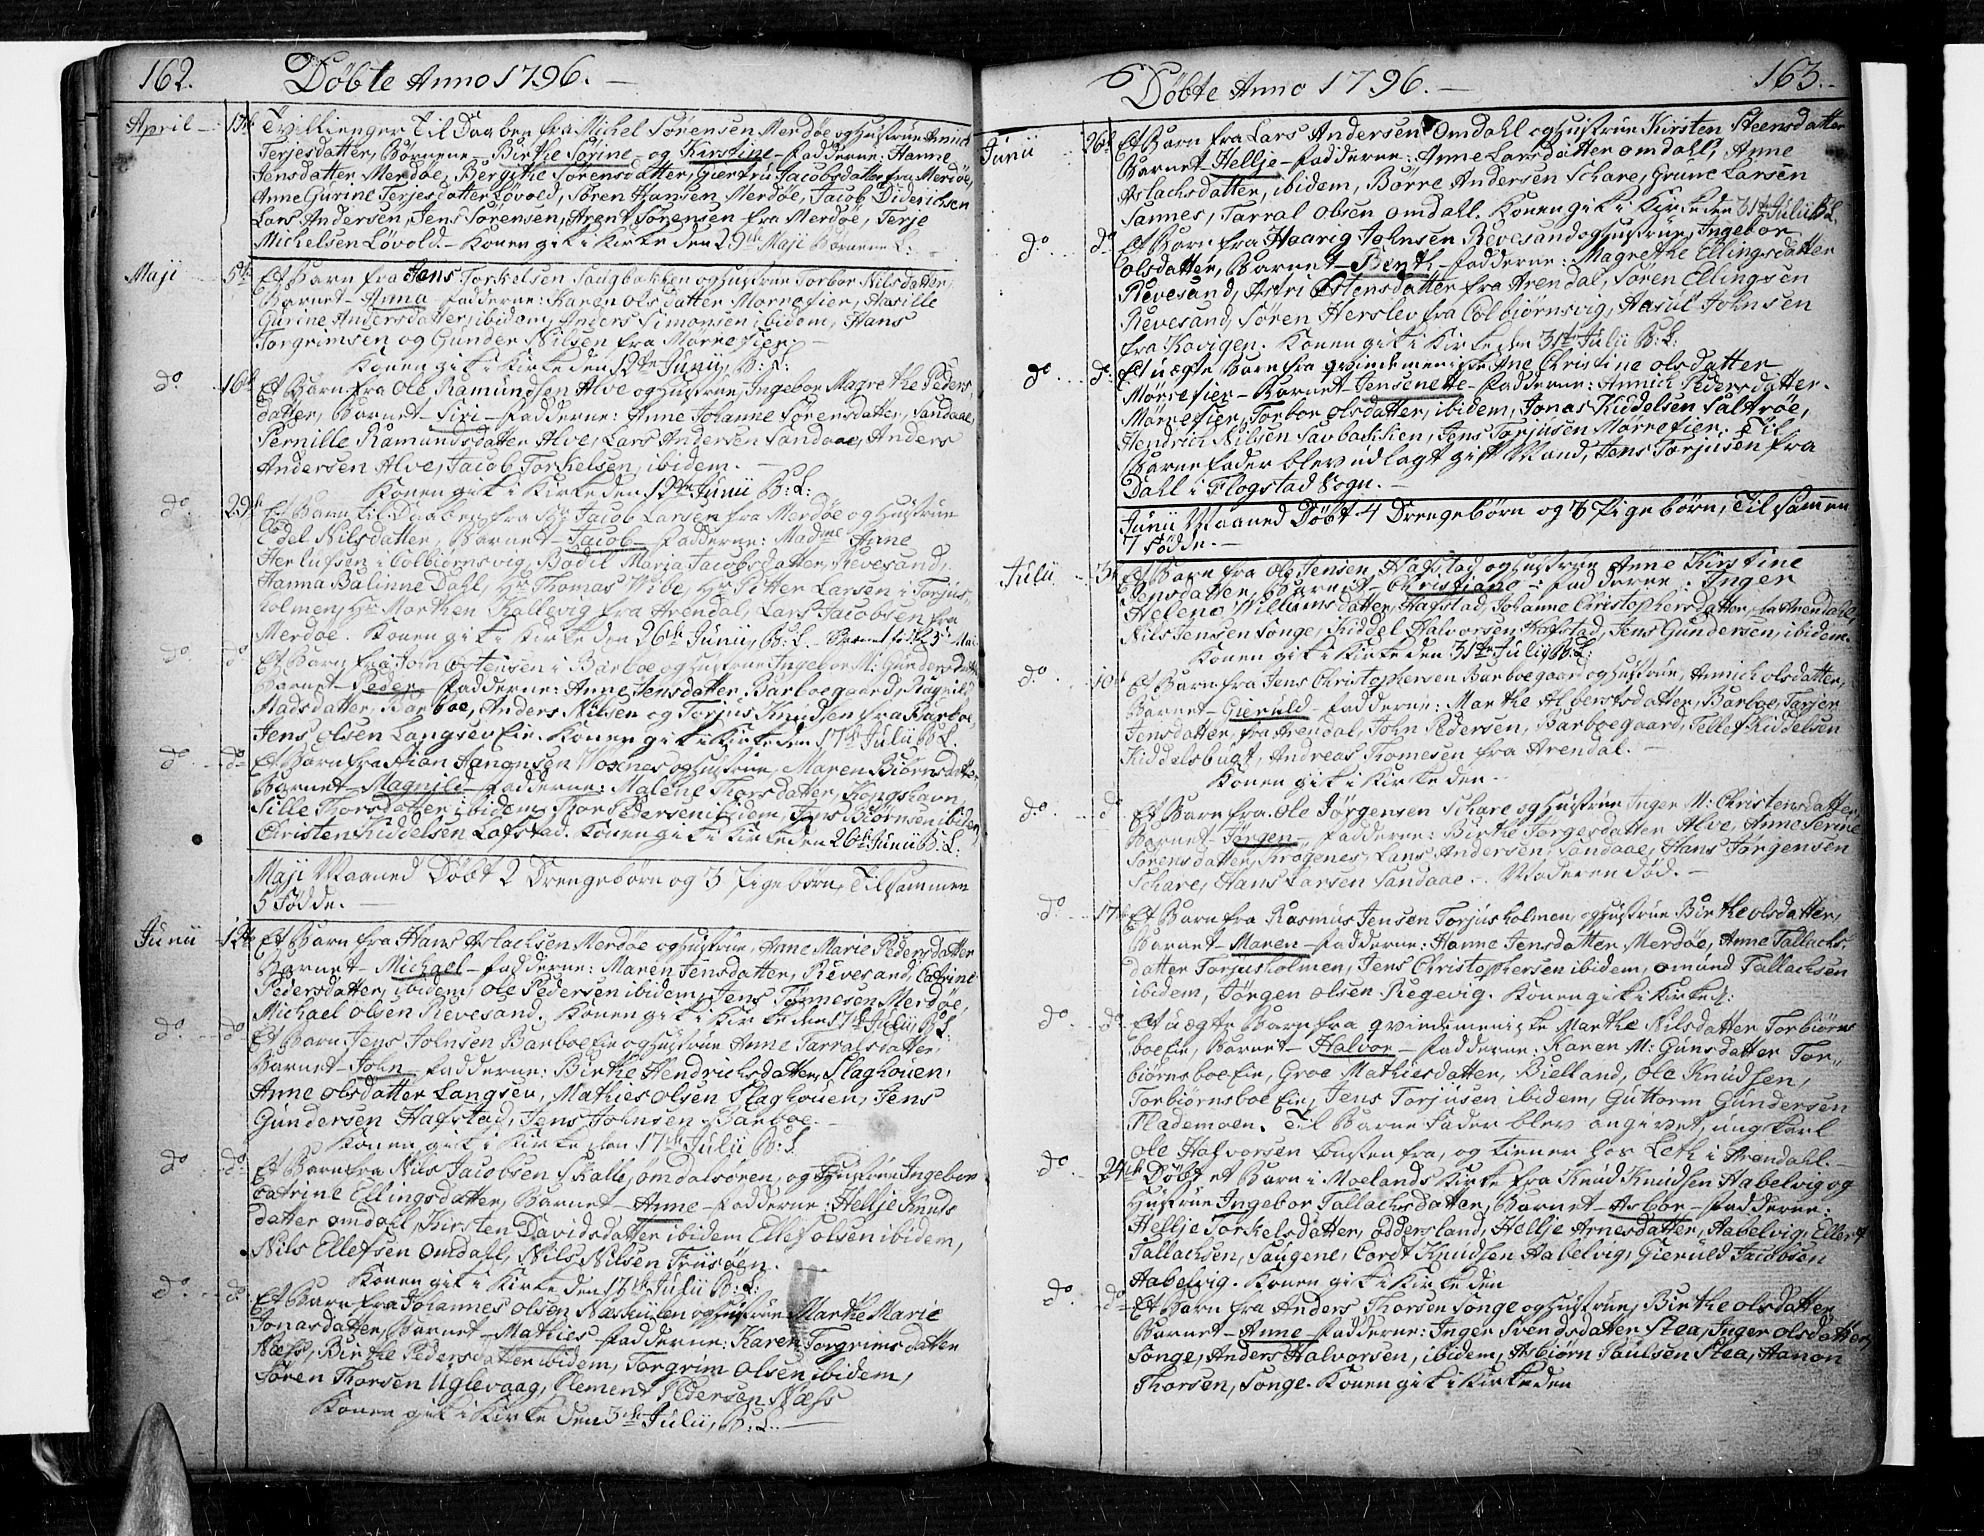 162. Döbte Anno 1796.
April 13de Tvillinger til Daaben fra Michel Sørensen Merdøe og hustrue Annich
Terjesdatter, Børnene Birthe Sorine og Kirstine fadderne: Hanne
Jensdatter Merdøe, Bergithe Sørensdatter, Giertru Jacobsdatter fra Merdøe,
Anne Gurine Terjesdatter Løvold, Søren Hansen Merdøe, Jacob Diderichsen
Lars Andersen, Jens Sørensen, Arent Sørensen fra Merdøe, Terje
Michelsen Løvold. Konen gik i Kirke den 29de Maji Børnene L:
Maji 5te Et Barn fra Jens Torkelsen Saugbakken og hustrue Torbor Nilsdatter,
Barnet Anna fadderne: Karen Olsdatter Mørrefier, Aasille
Gurine Andersdatter, ibidem, Anders Simonsen ibidem, Hans
Torgrimsen og Gunder Nilsen fra Mørrefier.
Konen gik i Kirke den 12te Junii, B: L:
do 16de Et Barn fra Ole Ramundsen Alve og hustrue, Ingebor Magrethe Peders
datter, Barnet Siri fadderne: Anne Johanne Sørensdatter, Sandaae,
Pernille Ramundsdatter Alve, Lars Andersen Sandaae, Anders
Andersen Alve, Jacob Torkelsen, ibidem.
Konen gik i Kirke den 12te Junii B: L:
do 29de Et Barn til Daaben fra Hr Jacob Larsen fra Merdøe og hustrue
Edel Nilsdatter, Barnet Jacob fadderne: Madme Anne
Herlufsen i Colbiørnsvig, Bodil Maria Jacobsdatter, Revesand,
Hanna Balinne Dahl, Hr Thomas Wibe, Hr Pitter Larsen i Torjus
holmen, Hr Morthen Kallevig fra Arendal, Lars Jacobsen fra
Merdøe. Konen gik i Kirke den 26de Junii, B: L.
do do Et Barn fra Jom Ostensen i Barboe og hustrue Ingebor M: Gundersdatter
Barnet Peder, fadderne: Anne Jensdatter, Barboegaard, Ragnild
Madsdatter, Barboe, Anders Nilsen og Torjus Knudsen fra Barboe,
Jens Olsen Langsev Eie. Konen gik i Kirke den 17de Julii B: L.
do do Et Barn fra Aian Aanonsen Voxnes og hustrue, Maren Biørnsdatter
Barnet Magnild fadderne: Malene Thorsdatter, Kongshavn,
Sille Thorsdatter ibidem, Thor Pedersen ibidem, Jens Biørnsen ibidem,
Christen Kiddelsen Lofstad. Konen gik i Kirke den 26de Junii B: L:
Maji Maaned Døbt 2 Drengebørn og 3 Pigebørn, Tilsammen
5 Fødde.
Junii 12te Et Barn fra Hans Aslachsen Merdøe og hustrue, Anne Marie Pedersdatter
Barnet Michael fadderne: Maren Jensdatter, Revesand, Catrine
Pedersdatter, ibidem, Ole Pedersen ibidem, Jens Tørnesen Merdøe,
Michael Olsen Revesand. Konen gik i Kirke den 17de Julii, B: L:
do do Et Barn Jens Johnsen Barboe Eie og hustrue Anne Tarralsdatter,
Barnet John fadderne: Birthe Hendrichsdatter, Flaghouen,
Anne Olsdatter Langsev, Mathies Olsen Flaghouen, Jens
Gundersen Hafstad, Jens Johnsen Barboe.
Konen gik i Kirke den 17de Julii B: L.
do do Et Barn fra Nils Jacobsen Skalle, Omdalsøren, og hustrue Ingebor
Catrine Ellingsdatter, Barnet Anne fadderne: Hellje Knuts
datter Omdahl, Kirsten Davidsdatter ibidem Ellef Olsen ibidem,
Nils Ellefsen Omdahl, Nils Nilsen Triisøen.
Konen gik i Kirke den 17de Julii B: L:
do do Et Barn fra Johannes Olsen Næskiilen og hustrue Marthe Marie
Jonasdatter, Barnet Mathies fadderne: Karen Torgrimsdatter
Næss, Birthe Pedersdatter ibidem, Torgrim Olsen ibidem,
Søren Thorsen Uglevaag, Clement Pedersen Næss
Konen gik i Kirke den 3de Julii, B: L.
Döbte Anno 1796. 163.
Junii 26de Et Barn fra Lars Andersen Omdahl og hustrue Kirsten Steensdatter
Barnet Hellje fadderne: Anne Larsdatter Omdahl, Anne
Aslachsdatter, ibidem, Børre Andersen Schare, Grunc Larsen
Sannes, Tarral Olsen Omdall. Konen gik i Kirke den 31te Julii B: L.
do do Et Barn fra Haarig Johnsen Revesand og hustrue, Ingebor
Olsdatter, Barnet Benth fadderne: Magrethe Ellingsdatter
Revesand, Astri Ostensdatter fra Arendal, Søren Ellingsen
Revesand, Søren Herslev fra Colbiørnsvig, Hasul Johnsen
fra Kovigen. Konen gik i Kirke den 31te Julii B: L:
do do Et uægte Barn fra qvindemeniske Ane Christine Olsdatter
Mørrefier Barnet Jensenete fadderne: Annich Pedersdatter
Mørrefier, Torbor Olsdatter, ibidem, Jonas Kiddelsen Saltrøe,
Hendrich Nilsen Savbakkien, Jens Torjusen Mørrefier. Til
Barnefader blev udlagt gift Mand, Jens Torjusen fra
Dahl i Flogstad Sogn.
Junii Maaned Døbt 4 Drengebørn og 3 Pigebørn, Tilsammen
7 Fødde.
Julii 3de Et Barn fra Ole Jensen, Hagstad og hustrue Anne Kirstine
Jensdatter, Barnet Christiane fadderne: Inger
Helene Williumsdatter, Hagstad, Johanne Christophersdatter, fra Arendahl,
Nils Jensen Songe, Kiddel Halvorsen Hafstad, Jens Gundersen, ibidem.
Konen gik i Kirke den 31te Julii B: L:
do 10de Et Barn fra Jens Christophersen Barboegaard og hustrue, Annich Olsdatter,
Barnet Gieruld fadderne: Marthe Albertsdatter, Barboe, Tarjer
Jensdatter, fra Arendal, John Pedersen, Barboegaard, Tellef Kiddelsen
Kiddelsbugt, Andreas Thomesen fra Arendal.
Konen gik i Kirke den
do do Et Barn fra Ole Jørgensen Schare og hustrue Inger M: Christensdatter,
Barnet Jørgen, fadderne: Birthe Jørgesdatter Alve, Anne Serine
Sørensdatter, Krogenes, Lars Andersen, Sandaae, Hans Jørgensen
Schare, Hans Larsen Sandaae. Moderen død.
do 17de Et Barn fra Rasmus Jensen Torjusholmen, og hustrue Birthe Olsdatter,
Barnet Maren fadderne: Hanne Jensdatter Merdøe, Anne Tallachs
datter Torjusholmen, Jens Christophersen ibidem, Omund Tallachsen
ibidem, Jørgen Olsen Regevig. Konen gik i Kirke d:
do do Et uægte Barn fra qvindemeniske Marthe Nilsdatter Torbiørns
boe Eie, Barnet Halvor fadderne: Karen M: Gunsdatter Tor
biørnsboe Eie, Groe Mathiesdatter, Bielland, Ole Knudsen,
Torbiørnsboe Eie, Jens Torjusen ibidem, Guttorm Gundersen
Flademoen. Til Barnefader blev angivet, ung Karl
Ole Halvorsen Østenfra, og tiener hos Leth i Arendahl.
do 24de Døbt et Barn i Moelands Kirke fra Knud Knudsen Habelvig og
hustrue Ingebor Tallachsdatter, Barnet Asbor fadderne:
Hellje Torkelsdatter, Eddersland, Hellje Arnesdatter, Habelvig, Ellef
Tallachsen, Saugene, Cordt Knudsen Habelvig, Gieruld Jacobsen
Habelvig. Konen gik i Kirke den
do do Et Barn fra Anders Thorsen Songe og hustrue, Birthe Olsdatter
Barnet Anne fadderne: Inger Svendsdatter Stea, Inger Olsdatter,
Songe, Anders Halvorsen, ibidem, Asbiørn Paulsen Stea, Aanon
Thorsen, Songe. Konen gik i Kirke den